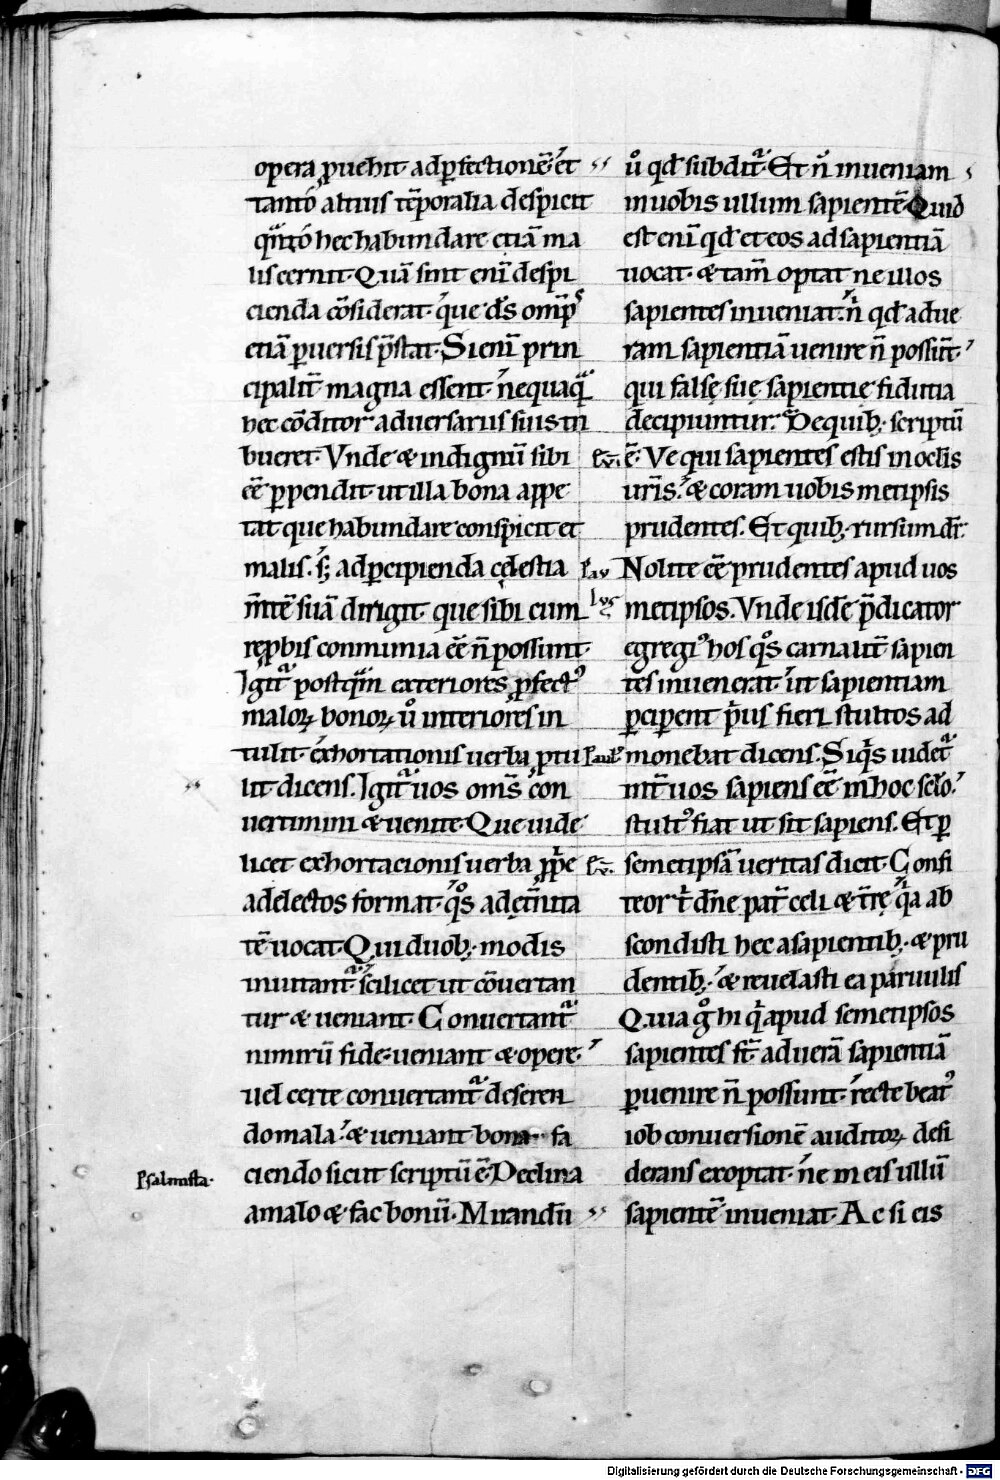 opera ꝓuehit adꝑfectionē et
tantó altius tēporalia despicit
qͣntó hec habundare etiā ma
lis cernit. Quā sint eni̅ despi
cienda cōsiderat. que ds̄ omp̄
etiā ꝑuersis p̄stat. Si eni̅ prin
cipalit̄ magna essent. nequaqͣ
hec cōditor aduersariis suis tri
bueret. Vnde & indignū sibi
ēē ꝑpendit. ut illa bona appe
tat que habundare conspicit et
malis. sꝫ adꝑcipienda cęlestia
m̄tē suā dirigit. que sibi cum
reꝓbis conmunia ēē n̄ possunt.
Igitͣ postqͣm exteriores ꝓfectꝰ
maloꝝ bonoꝝ uͦ interiores in
tulit. exhortationis uerba ꝓtu
lit dicens. Igitͣ uos om̄s con
uertimini & uenite. Que uide
licet exhortacionis uerba ꝓpͥe
ad electos format. qͦs ad ęt̄nita
tē uocat. Qui duobꝫ modis
inuitantͣ scilicet ut cōuertan
tur & ueniant. Conuertantͣ
nimirū fide. ueniant & opere.
uel certe conuertantͣ deseren
do mala. & ueniant bona fa
ciendo sicut scriptū ē. Declina
a malo & fac bonū. Mirandū
Psalmista.
uͦ qd̄ subditͣ. Et n̄ inueniam
in uobis ullum sapientē. Quid
est eni̅ qd̄ et eos ad sapientiā
uocat. & tam̄ optat ne illos
sapientes inueniat. n̄ qd̄ ad ue
ram sapientiā uenire n̄ possūt.
qui falsę suę sapientię fidutia
decipiuntur. De quibꝫ scriptū
ē. Ve qui sapientes estis in oclis
ur̄is. & coram uobismetipsis
prudentes. Et quibꝫ rursum dr̄.
Nolite ēē prudentes apud uos
metipsos. Vnde isdē p̄dicator
egregiꝰ hos qͦs carnalit̄ sapien
tes inuenerat. ut sapientiam
ꝑciperent pͥus fieri stultos ad
monebat dicens. Siqͥs uidetͣ
int̄ uos sapiens ēē in hoc sclo.
stultꝰ fiat ut sit sapiens. Et ꝑ
semetipsā ueritas dicit. Confi
teor tͥ dn̄e pat̄ celi & t̄rę qͥa ab
scondisti hec a sapientibꝫ. & pru
dentibꝫ. & reuelasti ea paruulis
Quia gͦ hi qͥ apud semetipsos
sapientes st̄ ad uerā sapientiā
ꝑuenire n̄ possunt. recte beatꝰ
iob conuersionē auditoꝝ desi
derans exoptat. ne in eis ullū
sapientē inueniat. Ac si eis
Digitalisierung gefördert durch die Deutsche Forschungsgemeinschaft - DFG